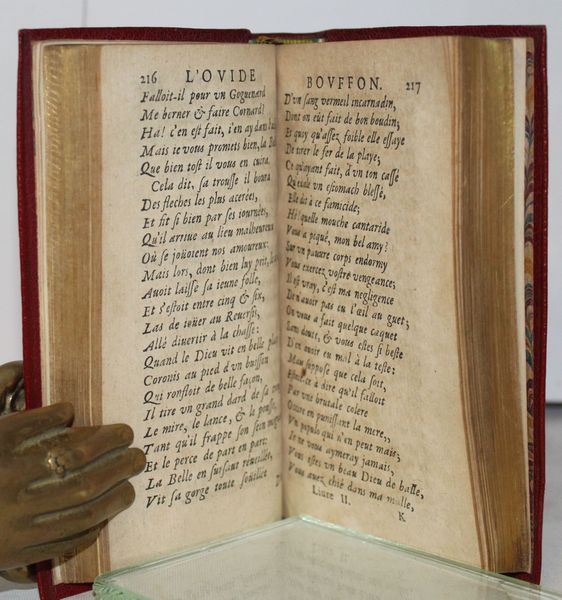 216 L'OVIDE
Falloit-il pour vn Goguenard
Me berner & faire Cornard!
Ha! c'en est fait, i'en ay dans
Mais ie vous promets bien, la
Que bien tost il vous en cuira.
Cela dit, sa trousse il boura
Des flesches les plus acerées,
Et fit si bien par ses iournées,
Qu'il arriue au lieu malheureux
Où se joüoient nos amoureux:
Mais lors, dont bien luy prit,
Auoit laissé sa ieune folle,
Et s'estoit entre cinq & six,
Las de ioüer au Reuersis,
Allé diuertir à la chasse:
Quand le Dieu vit en belle
Coronis au pied d'vn buisson
Qui ronfloit de belle façon,
Il tire vn grand dard de sa
Le mire, le lance, & le pousse,
Tant qu'il frappe son sein
Et le perce de part en part:
La Belle en sursaut réueillée,
Vit sa gorge toute soüillée
BOVFFON. 217
D'vn sang vermeil incarnadin,
Dont on eût fait de bon boudin;
Et quoy qu'assez foible elle essaye
De tirer le fer de la playe;
Ce qu'ayant fait, d'vn ton cassé
Qu'exale vn estomach blessé,
Elle dit à ce famicide;
Hé! quelle mouche cantaride
Vous a piqué, mon bel amy?
Sur vn pauure corps endormy
Vous exercez vostre vengeance;
Il est vray, c'est ma negligence
De n'auoir pas eu l'œil au guet;
On vous a fait quelque caquet
Sans doute, & vous estes si beste
D'en auoir eu mal à la teste:
Mais suppose que cela soit,
à dire qu'il falloit
Par vne brutale colere
Outre en punissant la mere,
Vn populo qui n'en peut mais;
Ie ne vous aymeray jamais,
Vous estes vn beau Dieu de balle,
Vous auez chié dans ma malle,
Liure II. K